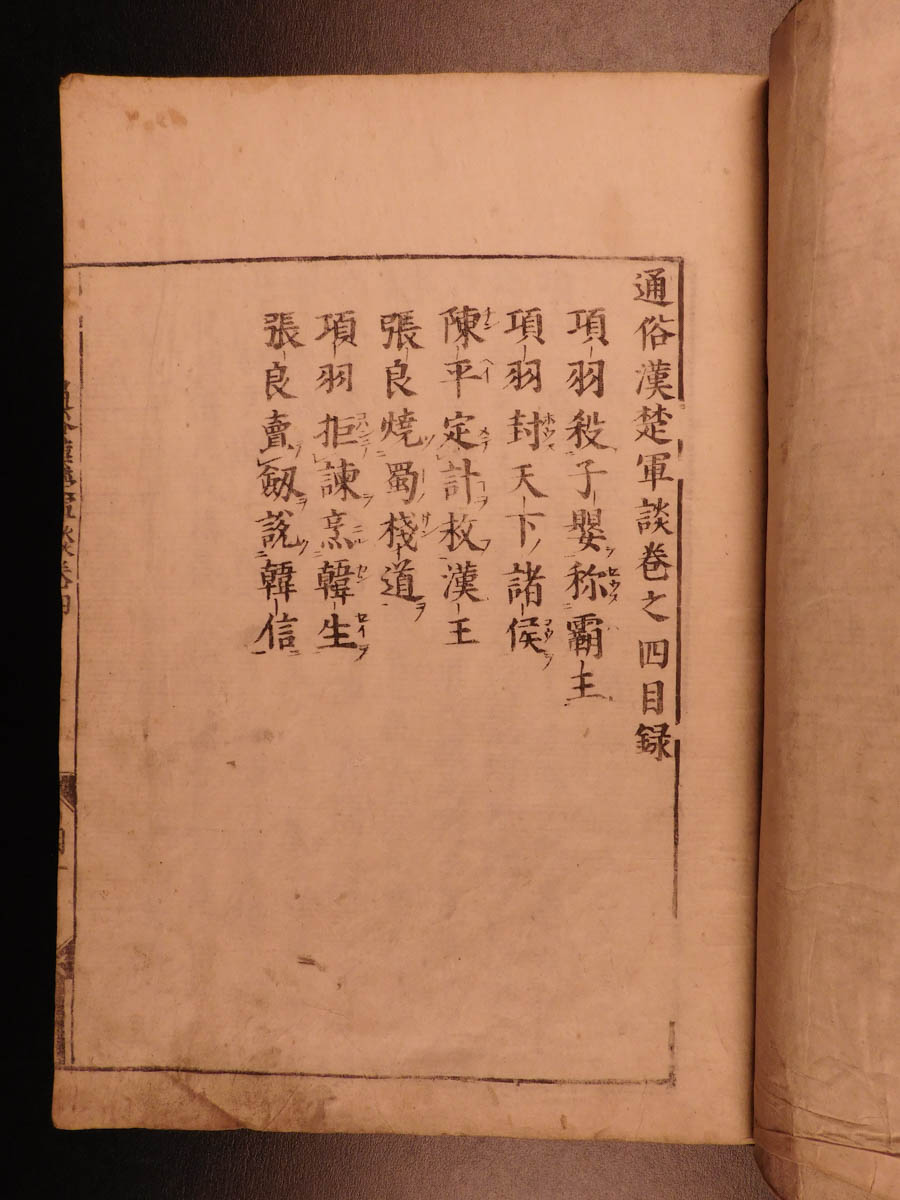 通俗漢楚軍談卷之四目録
項羽殺子嬰称霸主
項羽封天下諸侯
陳平定計救漢王
張良燒蜀棧道
項羽拒諫烹韓生
張良賣劔説韓信